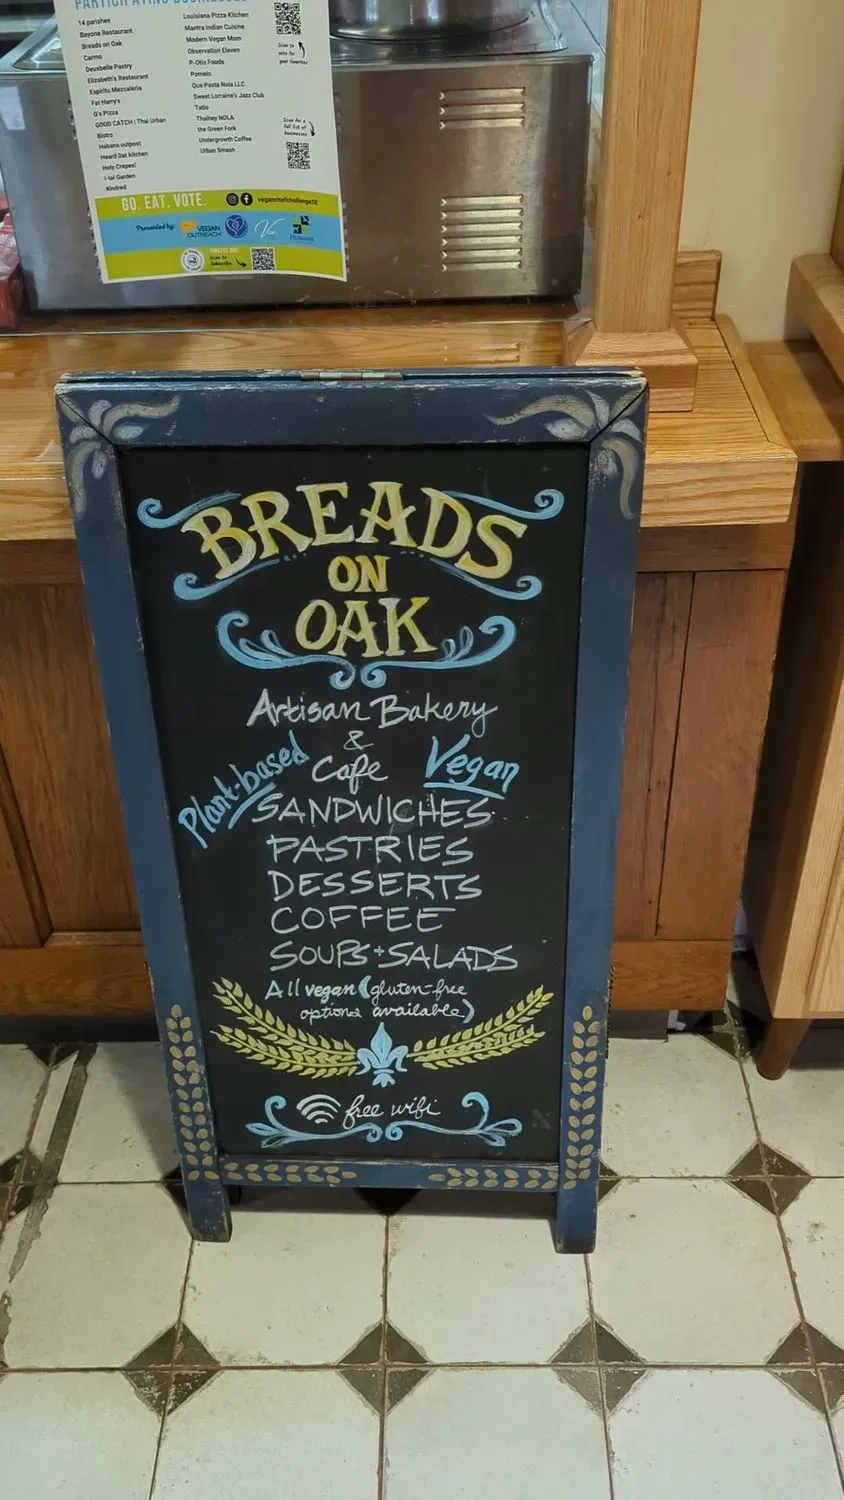 PARTICIPATING BUSINESSES
14 parishes
Bayona Restaurant
Breads on Oak
Carmo
Deusbelle Pastry
Elizabeth's Restaurant
Espiritu Mezcaleria
Fat Harry's
G's Pizza
GOOD CATCH | Thai Urban
Bistro
Habana outpost
Heard Dat kitchen
Holy Crepes!
I-tal Garden
Kindred
Louisiana Pizza Kitchen
Mantra Indian Cuisine
Modern Vegan Mom
Observation Eleven
P-Otis Foods
Pomelo
Que Pasta Nola LLC
Sweet Lorraine's Jazz Club
Tatlo
Thaihey NOLA
the Green Fork
Undergrowth Coffee
Urban Smash
Scan to
vote for
your favorites
Scan for a
full list of
businesses
GO. EAT. VOTE.
veganchefchallengeSE
Presented by:
VEGAN
OUTREACH
Scan to
Subscribe
BREADS
ON
OAK
Artisan Bakery
&
Cafe
Plant-based
Vegan
SANDWICHES
PASTRIES
DESSERTS
COFFEE
SOUPS + SALADS
All vegan (gluten-free
options available)
free wifi